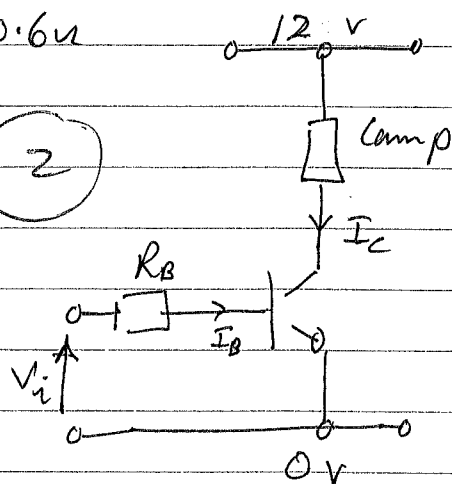 12 V
2
Lamp
I_C
R_B
I_B
V_i
0 V